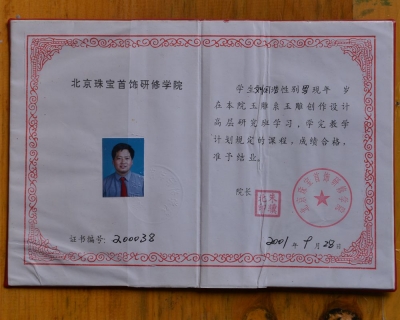 北京珠宝首饰研修学院
证书编号: 200038
学生 性别男现年 岁
在本院玉雕 玉雕创作设计
高层研究班学习，学完教学
计划规定的课程，成绩合格，
准予结业。
院长
北京珠宝首饰研修学院
2001年9月28日